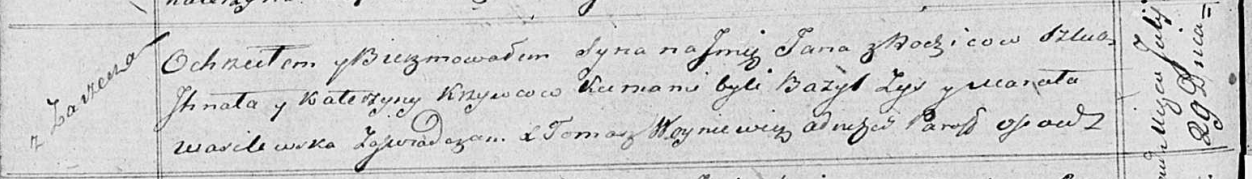 z Zarzecza
Ochrzciłem y Bierzmowałem Syna na Jmię Jana z Rodzicow Szlua=
Jhnata y Katerzyny Krzywcow Kumami byli Bazyl Zys y Marata
Wasilewska Zaswiadczam X Tomasz Woyniewicz
Julij
29 Dnia=